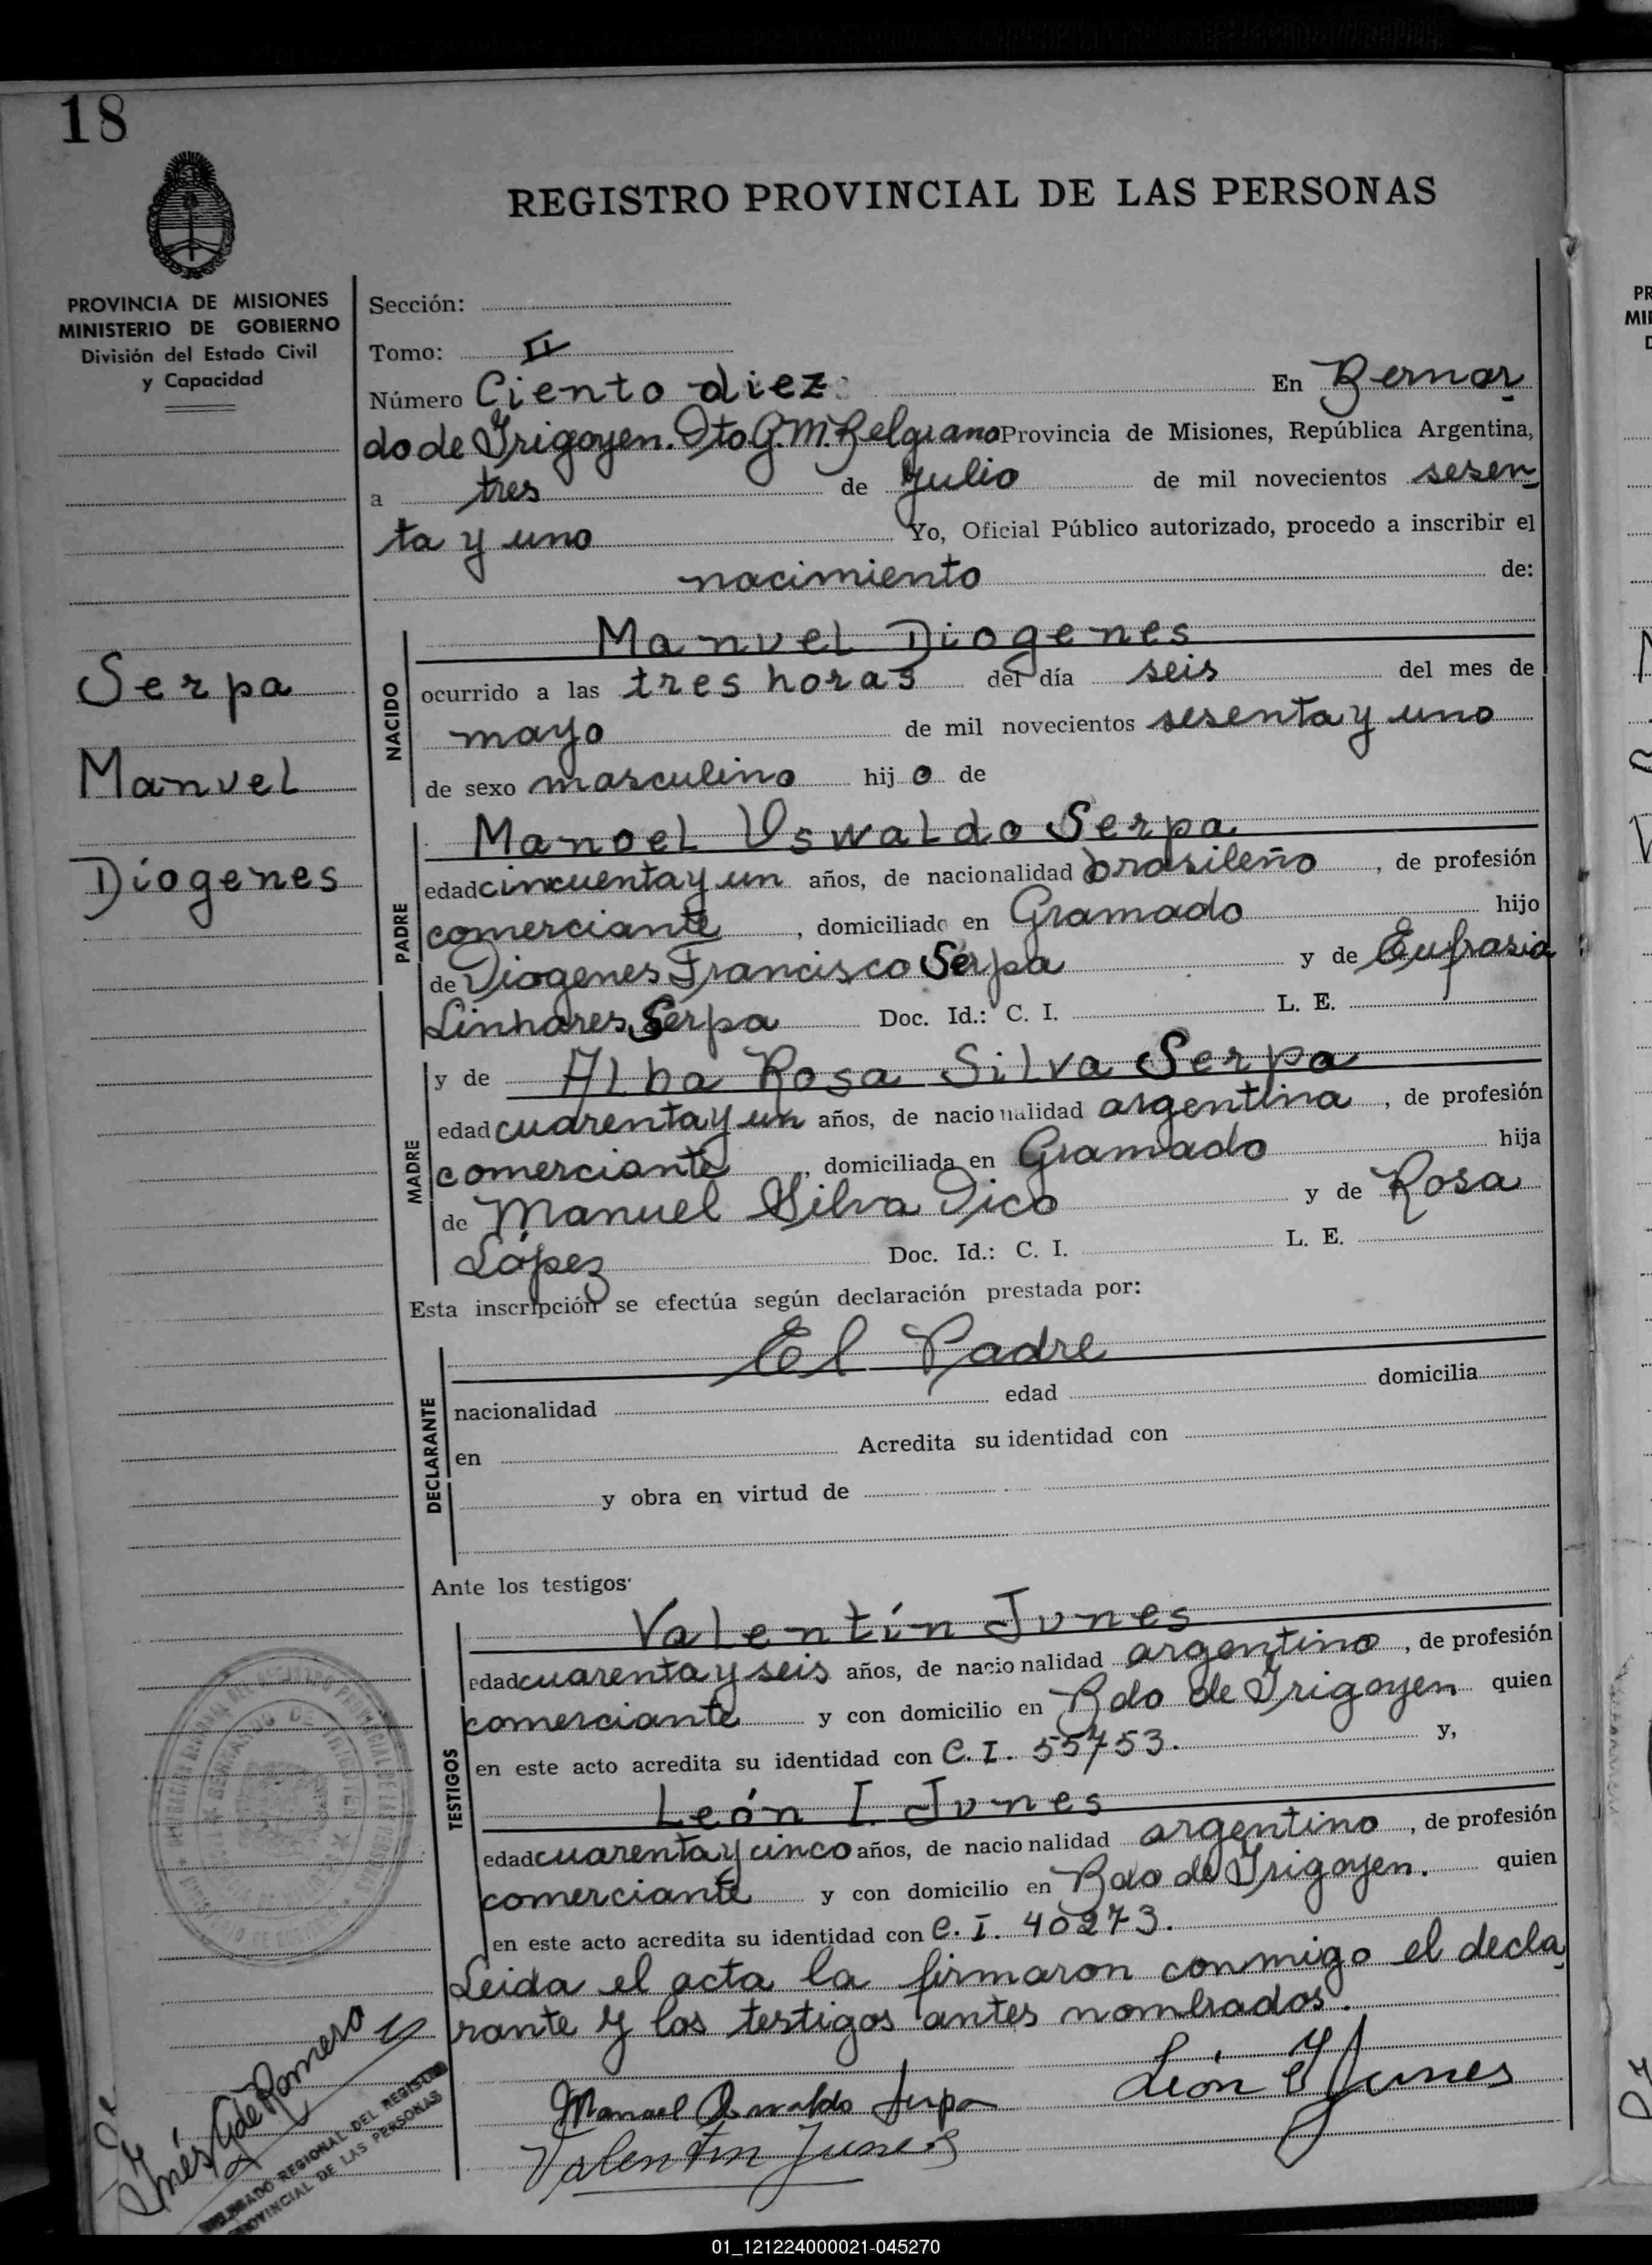 18
REGISTRO PROVINCIAL DE LAS PERSONAS
PROVINCIA DE MISIONES
MINISTERIO DE GOBIERNO
División del Estado Civil
y Capacidad
Serpa
Manuel
Diogenes
Sección:
Tomo: II
Número Ciento diez En Bernar
do de Irigoyen. Dto G. M. Belgrano Provincia de Misiones, República Argentina,
a tres de Julio de mil novecientos sesen
ta y uno Yo, Oficial Público autorizado, procedo a inscribir el
nacimiento de:
NACIDO
Manuel Diogenes
ocurrido a las tres horas del día seis del mes de
mayo de mil novecientos sesenta y uno
de sexo masculino hijo de
PADRE
Manoel Oswaldo Serpa
edad cincuenta y un años, de nacionalidad brasileño, de profesión
comerciante, domiciliado en Gramado hijo
de Diogenes Francisco Serpa y de Eufrasia
Linhares Serpa Doc. Id.: C. I. L. E.
MADRE
y de Alba Rosa Silva Serpa
edad cuarenta y un años, de nacionalidad argentina, de profesión
comerciante, domiciliada en Gramado hija
de Manuel Silva Dico y de Rosa
López Doc. Id.: C. I. L. E.
Esta inscripción se efectúa según declaración prestada por:
DECLARANTE
El Padre
nacionalidad edad domicilia
en Acredita su identidad con
y obra en virtud de
Ante los testigos:
TESTIGOS
Valentín Junes
edad cuarenta y seis años, de nacionalidad argentino, de profesión
comerciante y con domicilio en Bdo de Irigoyen quien
en este acto acredita su identidad con C. I. 55753. y,
León I. Junes
edad cuarenta y cinco años, de nacionalidad argentino, de profesión
comerciante y con domicilio en Bdo de Irigoyen. quien
en este acto acredita su identidad con C. I. 40273.
Leida el acta la firmaron conmigo el decla
rante y los testigos antes nombrados.
Manoel Oswaldo Serpa
León Y Junes
Valentín Junes
Inés G de Romero
DELEGADO REGIONAL DEL REGISTRO
PROVINCIAL DE LAS PERSONAS
01_121224000021-045270